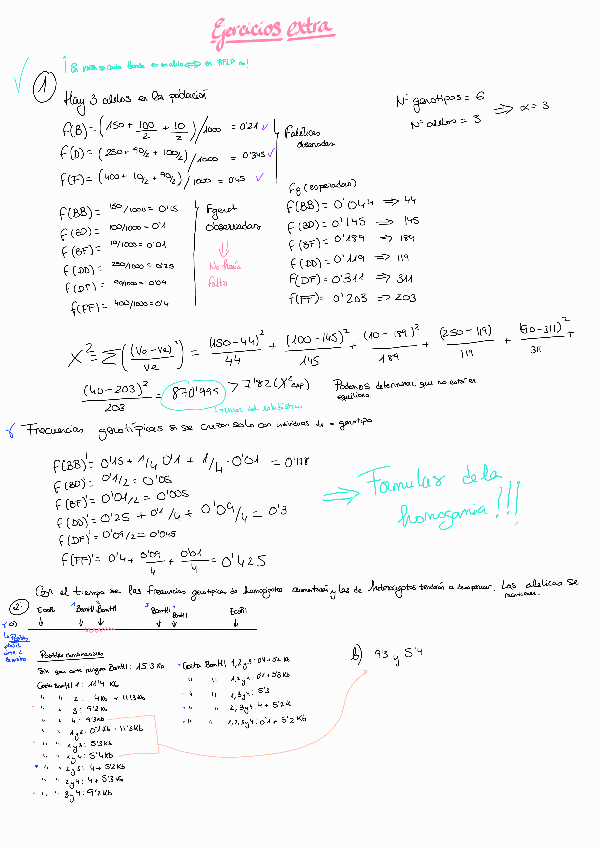 Ejercicios extra
1
Hay 3 alelos en la población
Nº genotipos = 6
Nº alelos = 3 ⇒ α = 3
f(B) = (150 + 100/2 + 10/2)/1000 = 0'21 ✓
f(D) = (250 + 90/2 + 100/2)/1000 = 0'345 ✓
f(F) = (400 + 10/2 + 90/2)/1000 = 0'45 ✓
F alélicas observadas
f(BB) = 150/1000 = 0'15
f(BD) = 100/1000 = 0'1
f(BF) = 10/1000 = 0'01
f(DD) = 250/1000 = 0'25
f(DF) = 90/1000 = 0'09
f(FF) = 400/1000 = 0'4
F genot observadas
⇓
No hacía falta
Fg (esperadas)
f(BB) = 0'044 ⇒ 44
f(BD) = 0'145 ⇒ 145
f(BF) = 0'189 ⇒ 189
f(DD) = 0'119 ⇒ 119
f(DF) = 0'311 ⇒ 311
f(FF) = 0'203 ⇒ 203
X² = Σ((Vo - Ve)²/Ve) = (150-44)²/44 + (100-145)²/145 + (10-189)²/189 + (250-119)/119 + (90-311)²/311 +
(40-203)²/203 = 870'995 > 7'82 (X² exp) Podemos determinar que no está en equilibrio.
Frecuencias genotípicas si se cruzan solo con individuos de = genotipo
f(BB)' = 0'15 + 1/4 0'1 + 1/4 · 0'01 = 0'178
f(BD)' = 0'1/2 = 0'05
f(BF)' = 0'01/2 = 0'005
f(DD)' = 0'25 + 0'1/4 + 0'09/4 = 0'3
f(DF)' = 0'09/2 = 0'045
f(FF)' = 0'4 + 0'09/4 + 0'01/4 = 0'425
⇒ Formulas de la homogamia!!!
Con el tiempo las frecuencias genotípicas de homocigotos aumentarán y las de heterocigotos tenderán a desaparecer. Las alélicas se mantienen.
2
a) EcoRI 1 BamHI 2 BamHI 3 BamHI 4 BamHI EcoRI
Posibles combinaciones
Sin que corte ningún BamHI: 15'3 Kb
Corta BamHI 1: 11'4 Kb
" " 2: 4 Kb + 11'3 Kb
" " 3: 9'2 Kb
" " 4: 9'3 Kb
" " 1 y 2: 0'1 Kb + 11'3 Kb
" " 1 y 3: 5'3 Kb
" " 1 y 4: 5'4 Kb
" " 2 y 3: 4 + 5'2 Kb
" " 2 y 4: 4 + 5'3 Kb
" " 3 y 4: 9'2 Kb
Corta BamHI 1, 2 y 3: 0'1 + 5'2 Kb
" " 1, 2 y 4: 0'1 + 5'3 Kb
" " 1, 3 y 4: 5'3
" " 2, 3 y 4: 4 + 5'2 K
" " 1, 2, 3 y 4: 0'1 + 5'2 Kb
b) 9'3 y 5'4